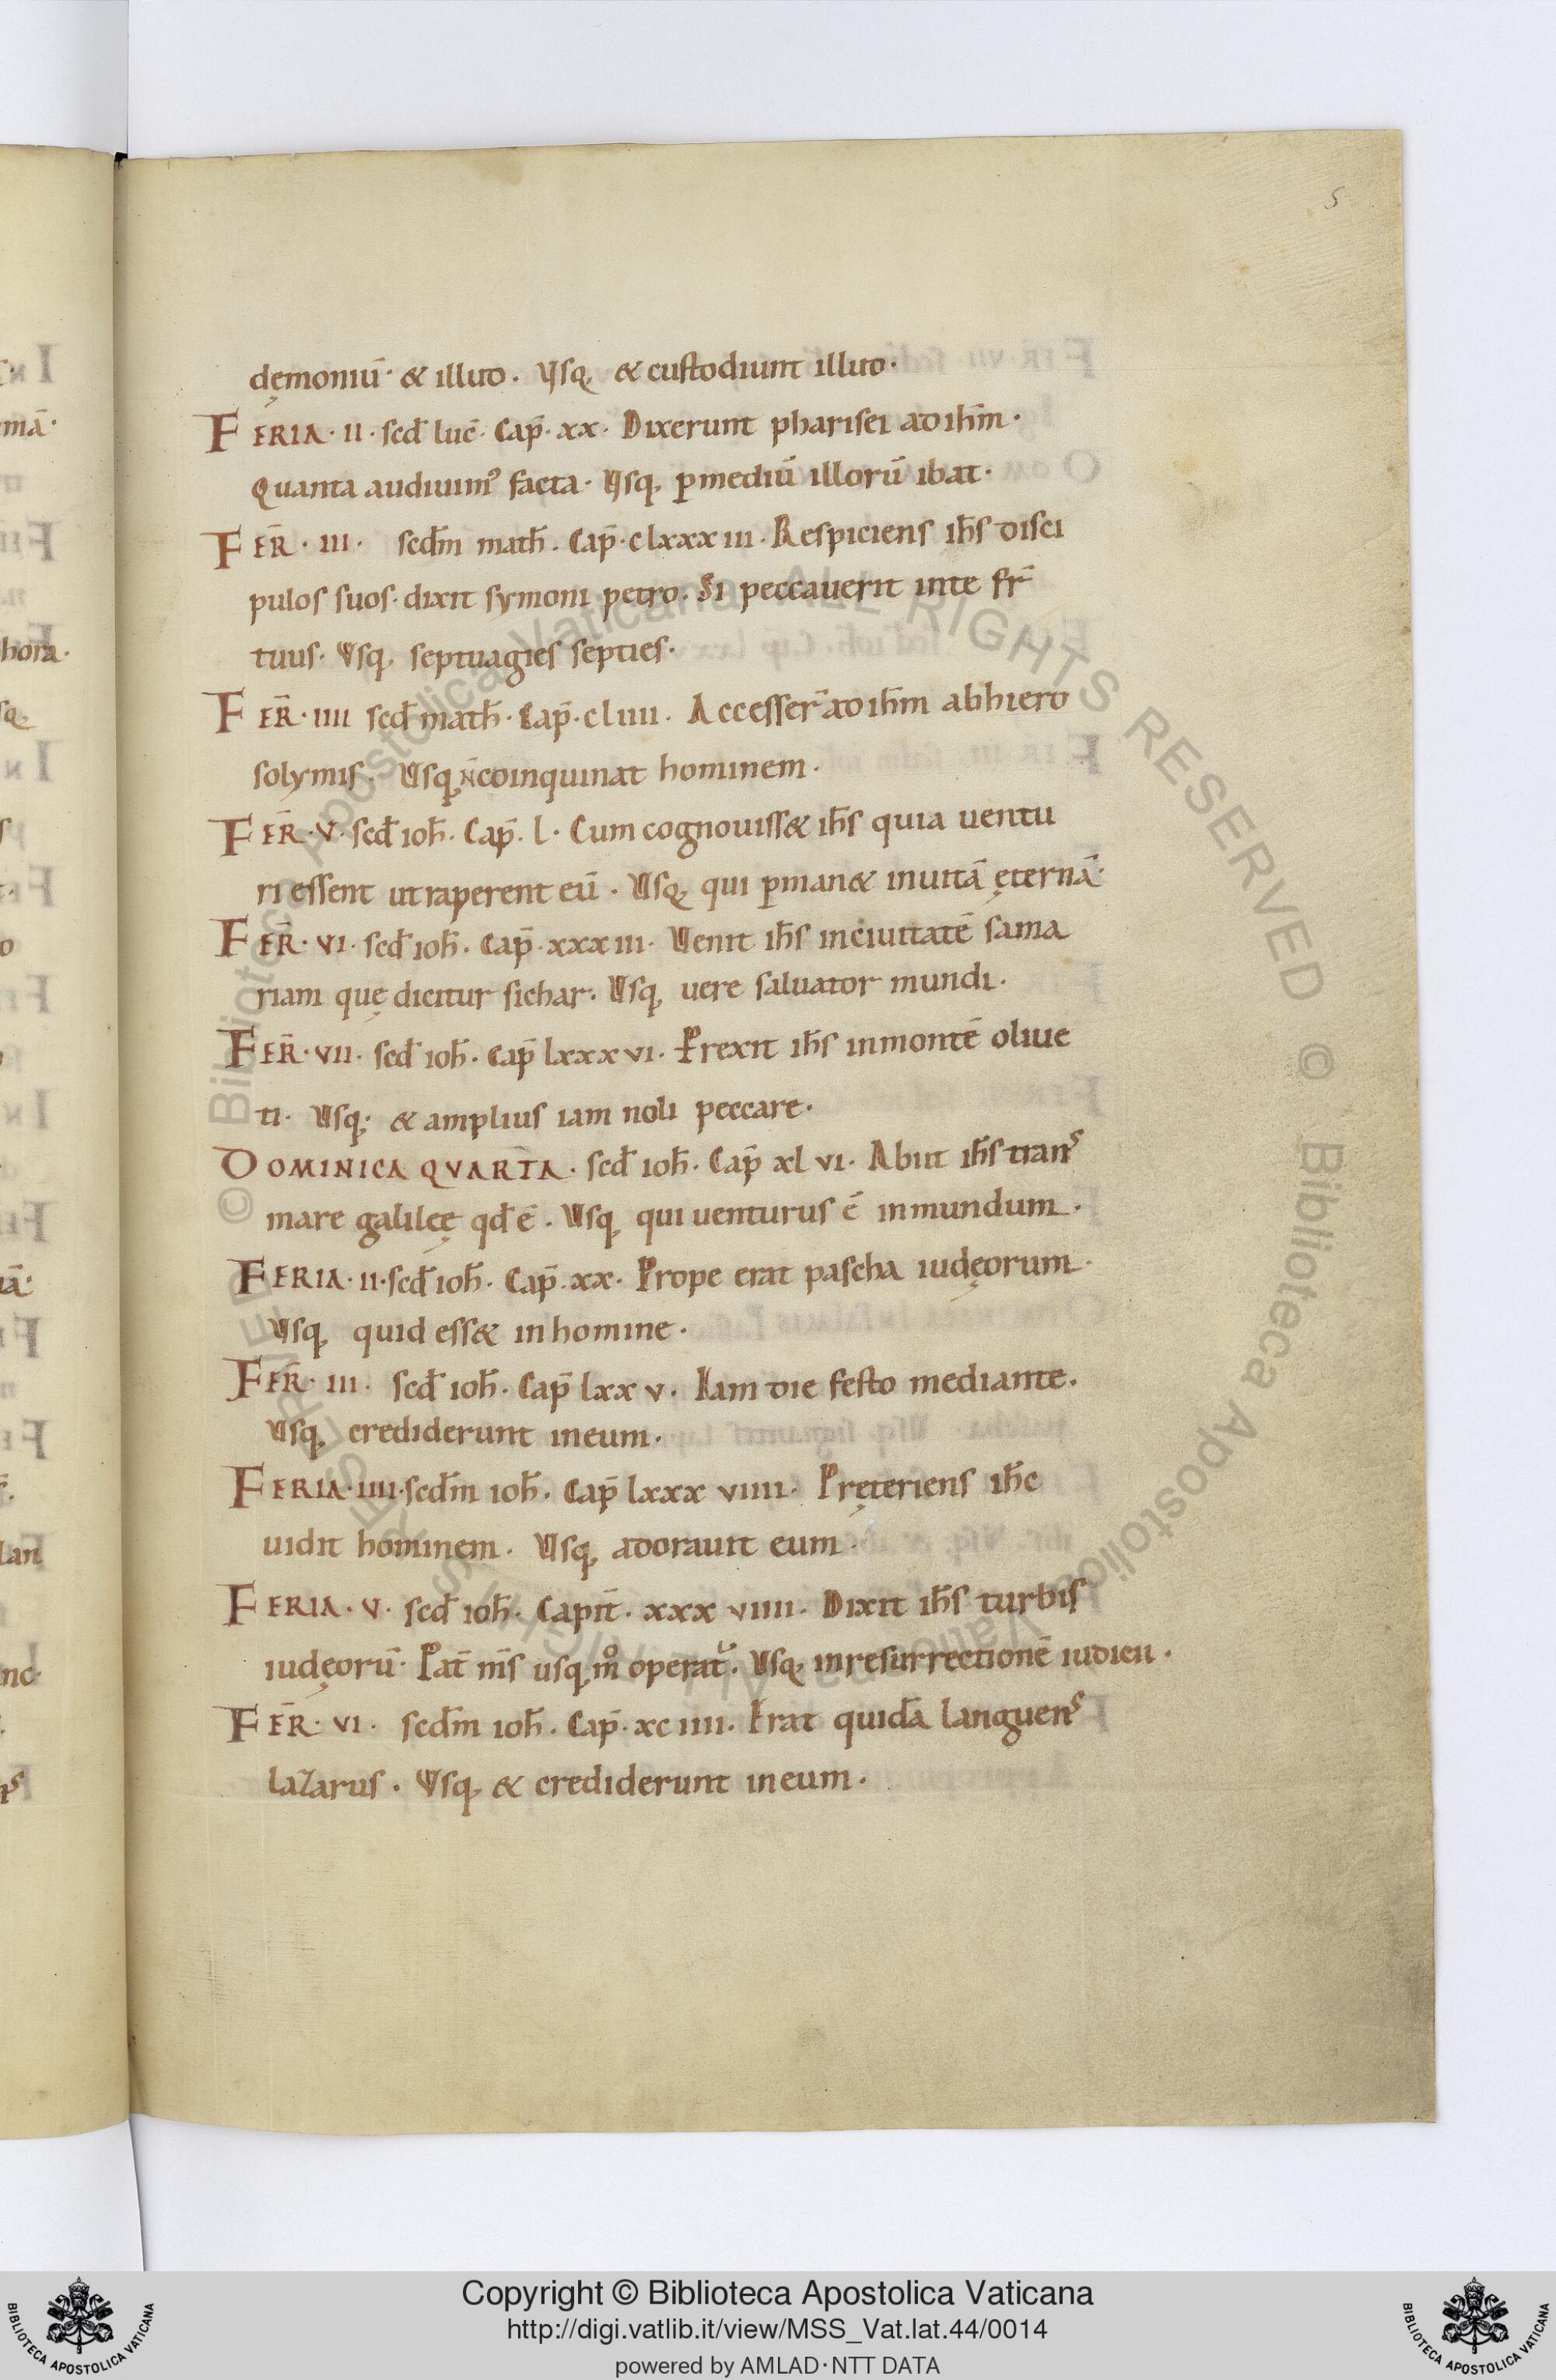 5
dęmoniū · & illud . Usq; & custodiunt illud ·
FERIA · II · scđ luc̄ · Cap̄ · xx · Dixerunt pharisei ad ih̄m ·
Quanta audiuim⁹ facta · Usq; ꝑmediū illorū ibat ·
FER̄ · III · scđm math̄ . Cap̄ · clxxxiii . Respiciens ih̄s disci
pulos suos · dixit symoni petro . Si peccauerit inte fr̄
tuus · Usq; septuagies septies ·
FER̄ · IIII scđ math̄ · Cap̄ · cliiii . Accesser̄ ad ih̄m abhiero
solymis . Usq; n̄ coinquinat hominem ·
FER̄ · V · scđ ioh̄ . Cap̄ . l · Cum cognouiss& ih̄s quia uentu
ri essent utraperent eū . Usq; qui ꝑman& inuitā ęternā ·
FER̄ · VI · scđ ioh̄ . Cap̄ · xxxiii · Uenit ih̄s inciuitatē sama
riam quę dicitur sichar . Usq; uere saluator mundi .
FER̄ · VII · scđ ioh̄ . Cap̄ lxxxvi . Prexit ih̄s inmontē oliue
ti . Usq; & amplius iam noli peccare ·
DOMINICA QVARTA . scđ ioh̄ . Cap̄ xlvi · Abiit ih̄s trans
mare galileę qđ ē . Usq; qui uenturus ē inmundum .
FERIA · II · scđ ioh̄ . Cap̄ . xx . Prope erat pascha iudęorum ·
Usq; quid ess& inhomine ·
FER̄ · III · scđ ioh̄ . Cap̄ lxxv . Iam die festo mediante .
Usq; crediderunt ineum .
FERIA · IIII · scđm ioh̄ . Cap̄ lxxxviiii · Pręteriens ih̄c
uidit hominem . Usq; adorauit eum .
FERIA · V · scđ ioh̄ · Capit̄ . xxxviiii . Dixit ih̄s turbis
iudęorū · Pat̄ m̄s usq; m̊ operat᷑ . Usq; inresurrectionē iudicii .
FER̄ · VI . scđm ioh̄ . Cap̄ · xciiii . Erat quidā languens
lazarus . Usq; & crediderunt ineum .
Copyright © Biblioteca Apostolica Vaticana
http://digi.vatlib.it/view/MSS_Vat.lat.44/0014
powered by AMLAD·NTT DATA
BIBLIOTECA APOSTOLICA VATICANA
BIBLIOTECA APOSTOLICA VATICANA
© Biblioteca Apostolica Vaticana ALL RIGHTS RESERVED © Biblioteca Apostolica Vaticana ALL RIGHTS RESERVED